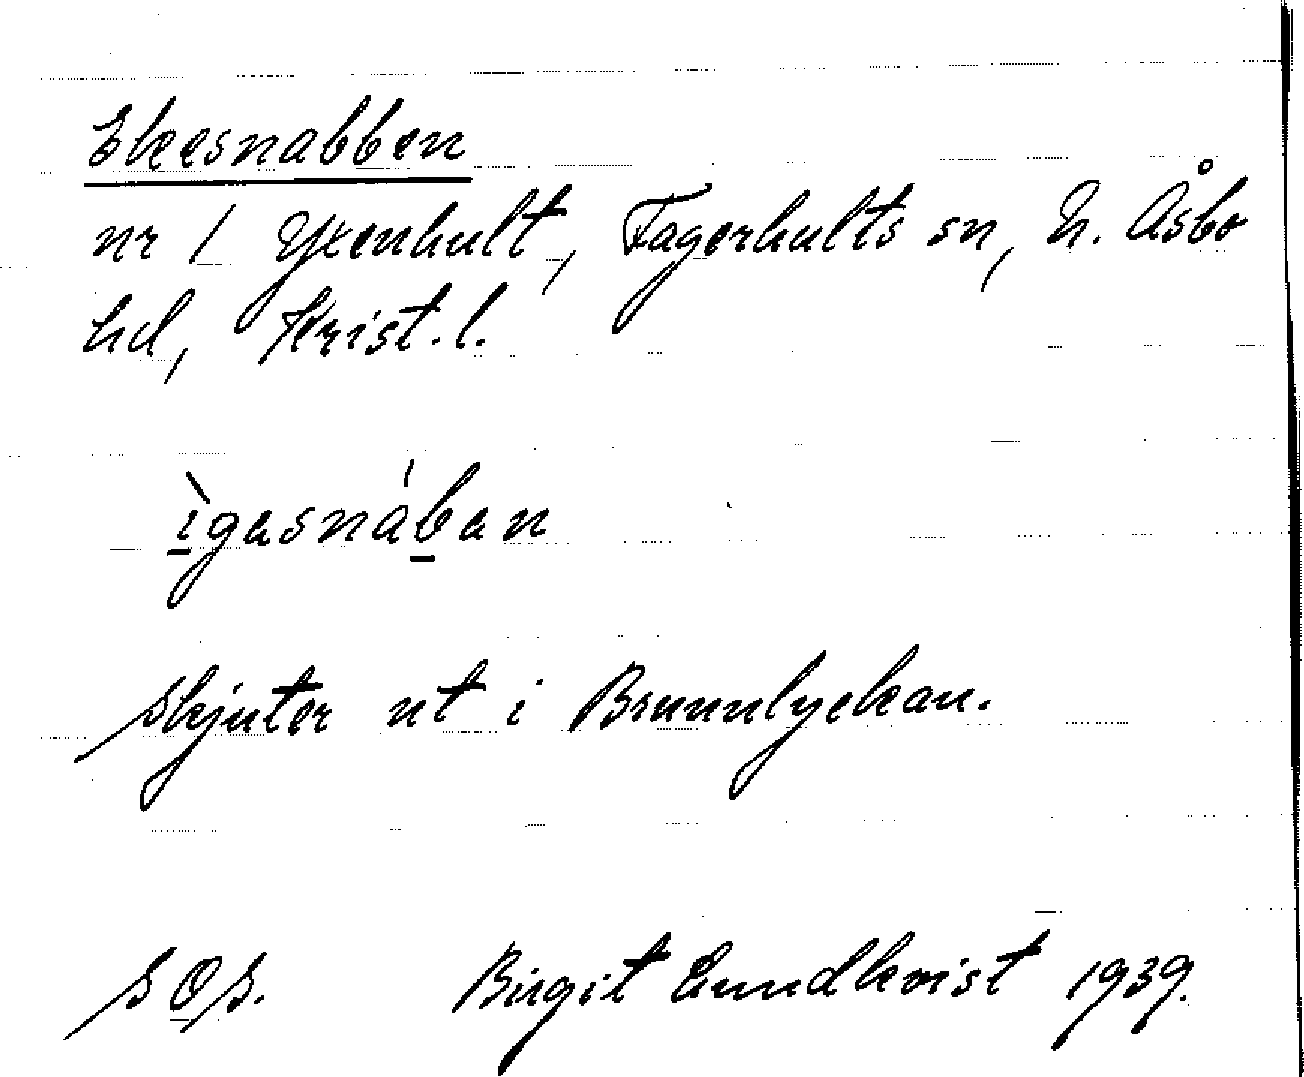 Ekesnabben
nr 1 Yxenhult, Fagerhults sn, N. Åsbo
hd, Krist. l.
ìgasnában
Skjuter ut i Brunnlyckan.
S O S. Birgit Lundkvist 1939.